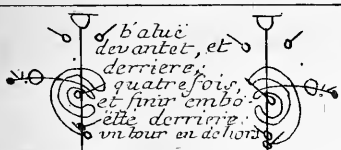 b'atuë
devantet, et
derriere;
quatrefois,
et finir embo-
ëtte derriere:
vn tour en dehors